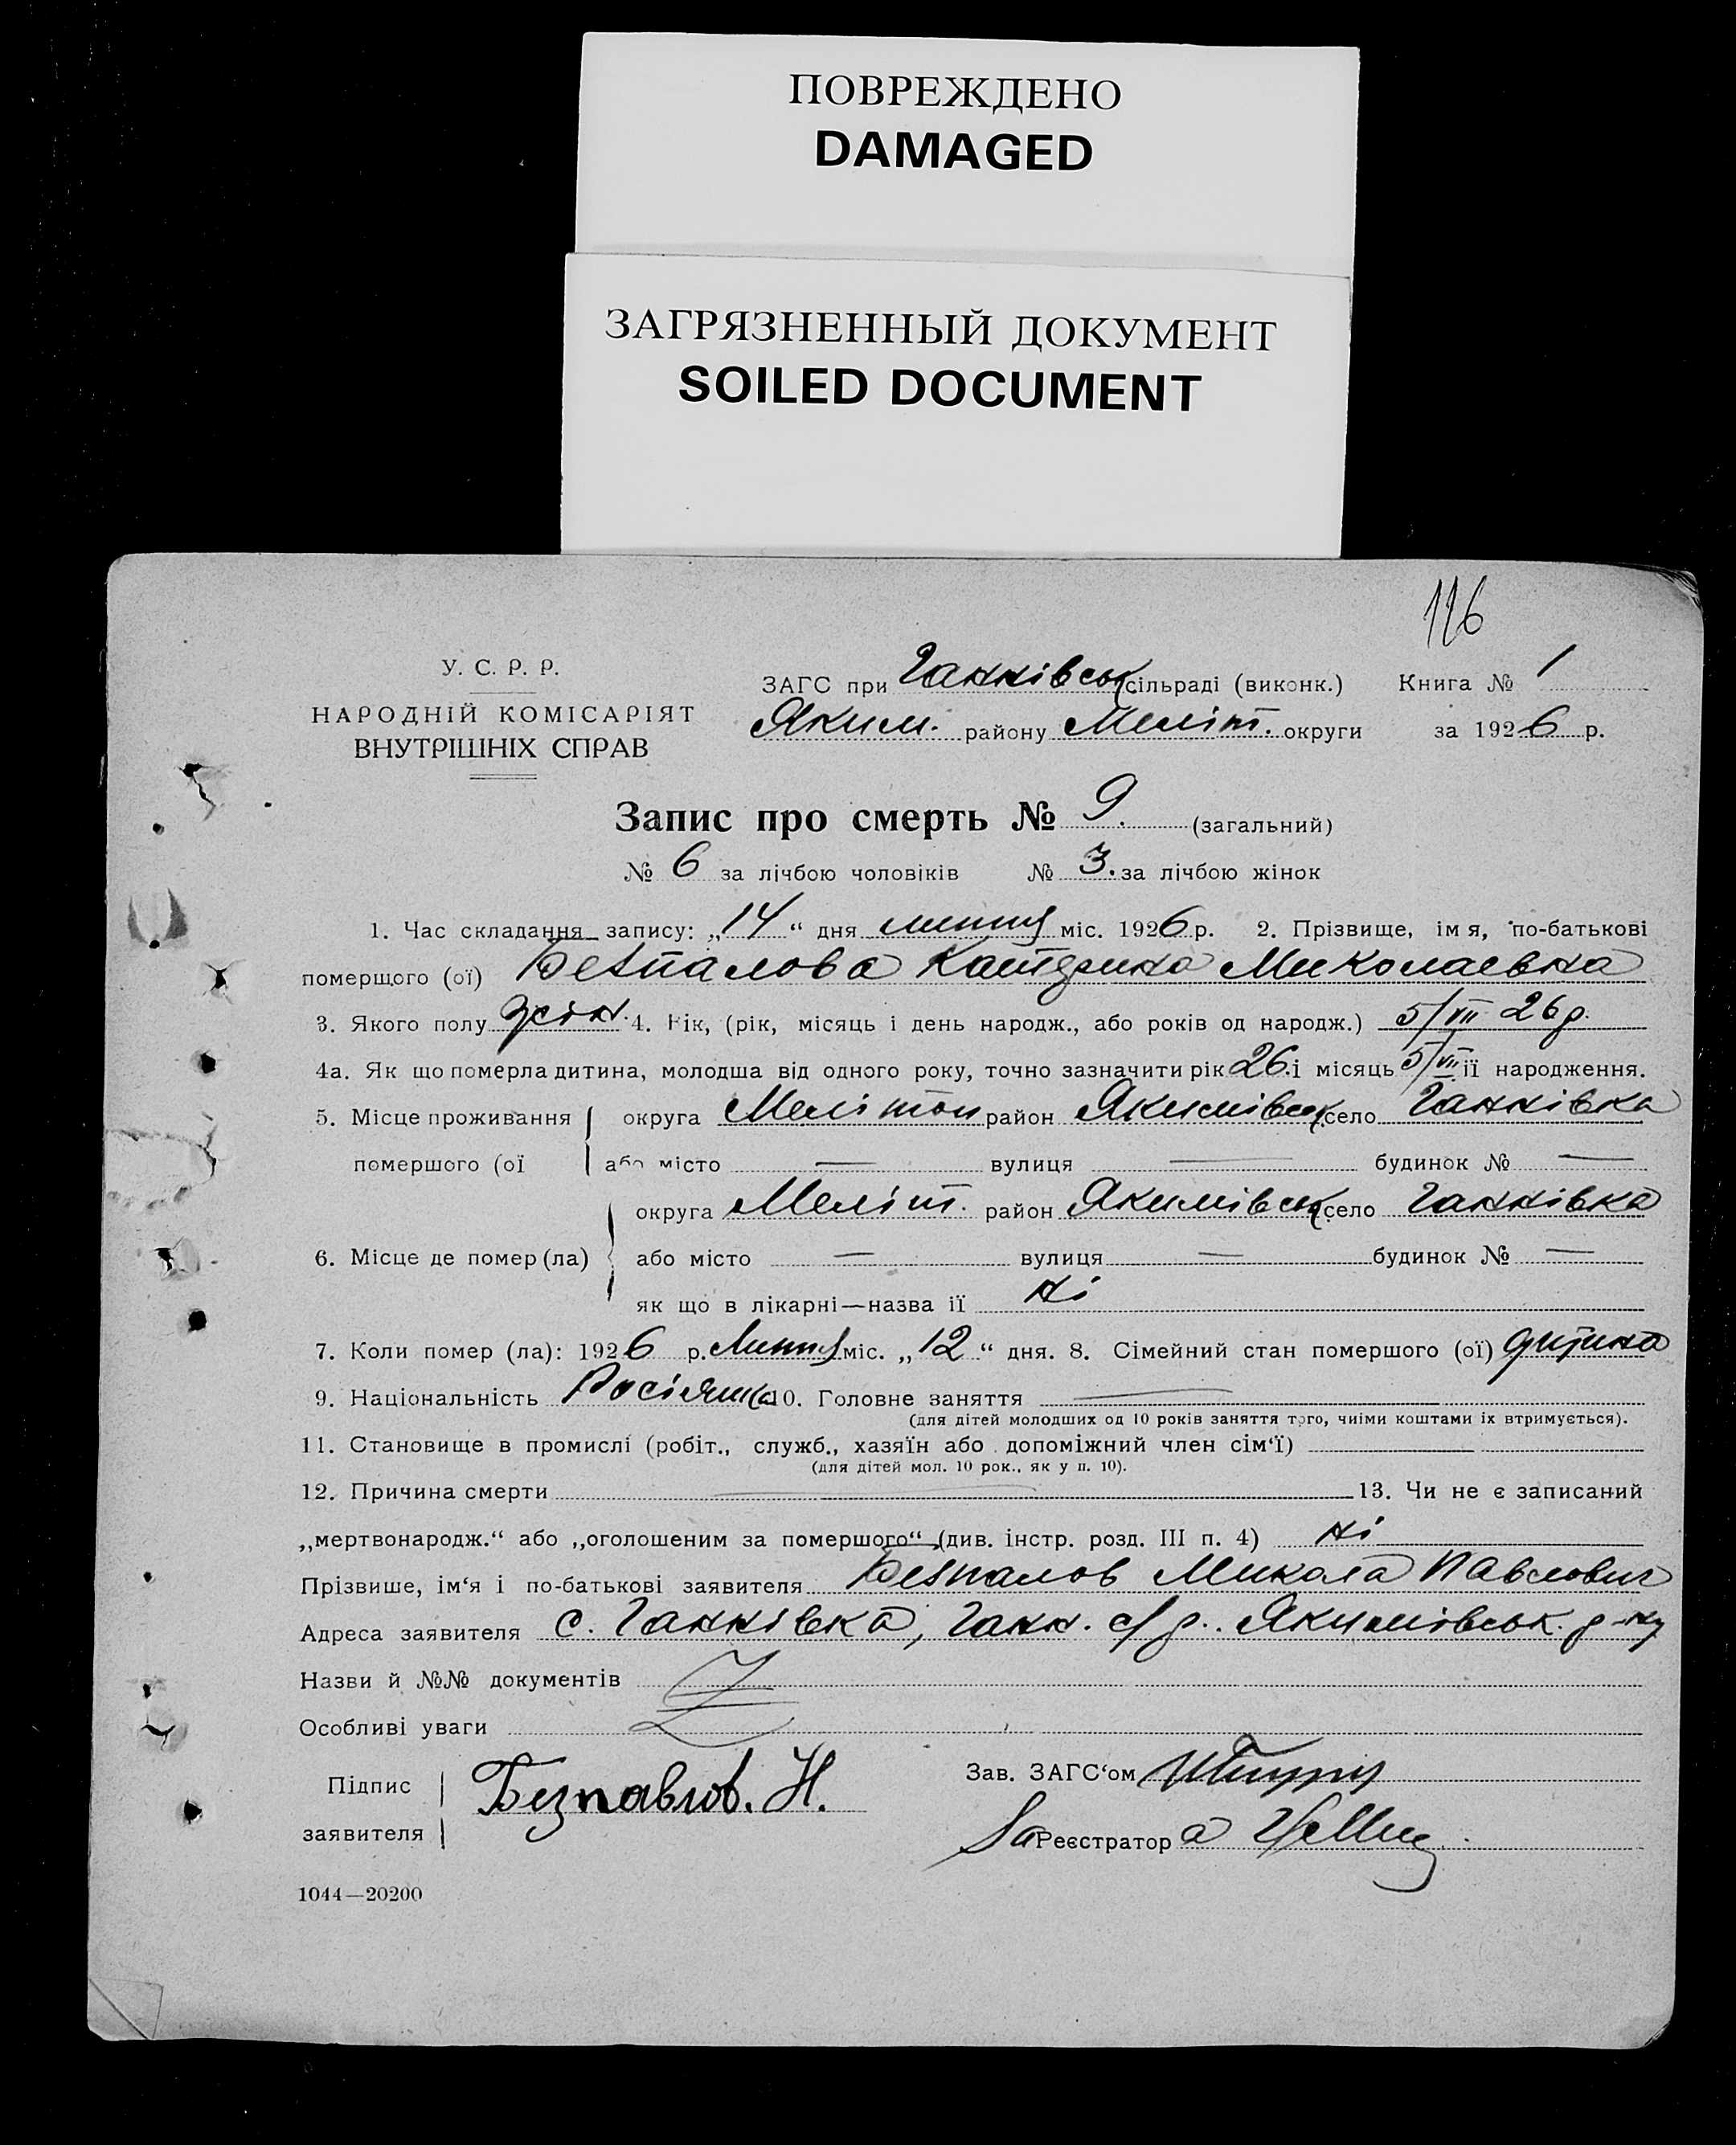 ПОВРЕЖДЕНО
DAMAGED
ЗАГРЯЗНЕННЫЙ ДОКУМЕНТ
SOILED DOCUMENT
116
У. С. Р. Р.
НАРОДНІЙ КОМІСАРІЯТ
ВНУТРІШНІХ СПРАВ
ЗАГС при Ганнівськ сільраді (виконк.) Книга № 1
Яким. району Меліт. округи за 1926 р.
Запис про смерть № 9. (загальний)
№ 6 за лічбою чоловіків № 3. за лічбою жінок
1. Час складання запису: „14“ дня липня міс. 1926 р. 2. Прізвище, ім я, по-батькові
померщого (ої) Безпалова Катерина Миколаевна
3. Якого полу жін. 4. Рік, (рік, місяць і день народж., або років од народж.) 5/VII 26 р.
4а. Як що померла дитина, молодша від одного року, точно зазначити рік 26. і місяць 5/VII її народження.
5. Місце проживання округа Мелітоп район Якимівськ село Ганнівка
помершого (ої або місто — вулиця — будинок № —
округа Меліт. район Якимівськ село Ганнівка
6. Місце де помер (ла) або місто — вулиця — будинок № —
як що в лікарні—назва її ні
7. Коли помер (ла): 1926 р. Липня міс. „12“ дня. 8. Сімейний стан помершого (ої) дитина
9. Національність Росіянка 10. Головне заняття —
(для дітей молодших од 10 років заняття того, чиїми коштами їх втримується).
11. Становище в промислі (робіт., служб., хазяїн або допоміжний член сім‘ї)
(для дітей мол. 10 рок., як у п. 10).
12. Причина смерти — 13. Чи не є записаний
„мертвонародж.“ або „оголошеним за помершого“ (див. інстр. розд. III п. 4) ні
Прізвише, ім‘я і по-батькові заявителя Безпалов Микола Павлович
Адреса заявителя с. Ганнівка, Ганн. с/р. Якимівськ. р-ну
Назви й №№ документів
Особливі уваги
Підпис
заявителя Безпалов. Н.
Зав. ЗАГС‘ом
За Реєстратор а
1044—20200